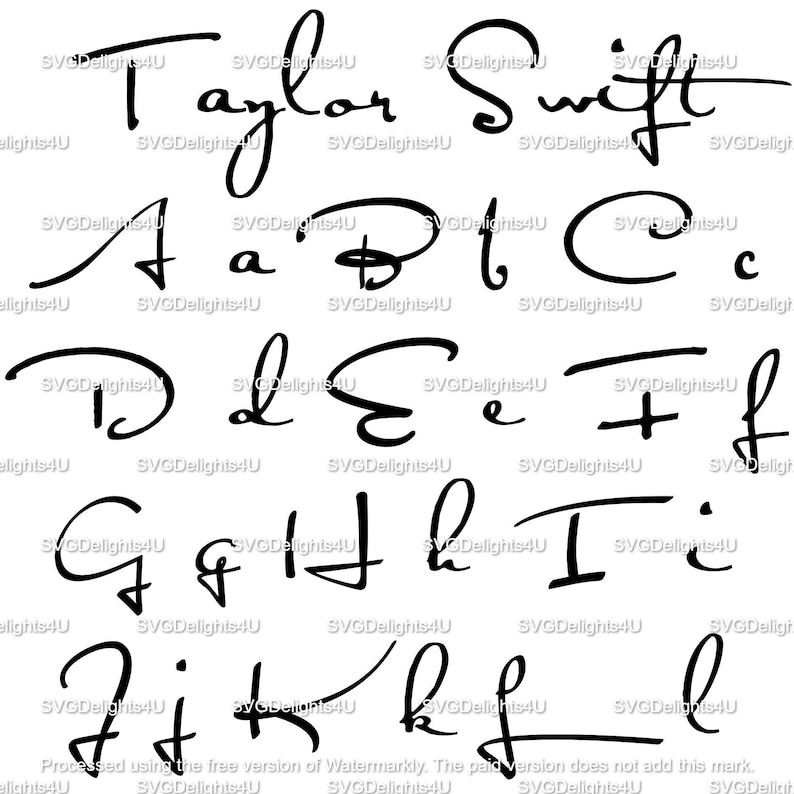 Taylor Swift
SVGDelights4U SVGDelights4U SVGDelights4U SVGDelights4U
SVGDelights4U SVGDelights4U SVGDelights4U
A a B b C c
SVGDelights4U SVGDelights4U SVGDelights4U SVGDelights4U
SVGDelights4U SVGDelights4U SVGDelights4U
D d E e F f
SVGDelights4U SVGDelights4U SVGDelights4U SVGDelights4U
SVGDelights4U SVGDelights4U SVGDelights4U
G g H h I i
SVGDelights4U SVGDelights4U SVGDelights4U SVGDelights4U
SVGDelights4U SVGDelights4U SVGDelights4U
J j K k L l
SVGDelights4U SVGDelights4U SVGDelights4U SVGDelights4U
Processed using the free version of Watermarkly. The paid version does not add this mark.
SVGDelights4U SVGDelights4U SVGDelights4U